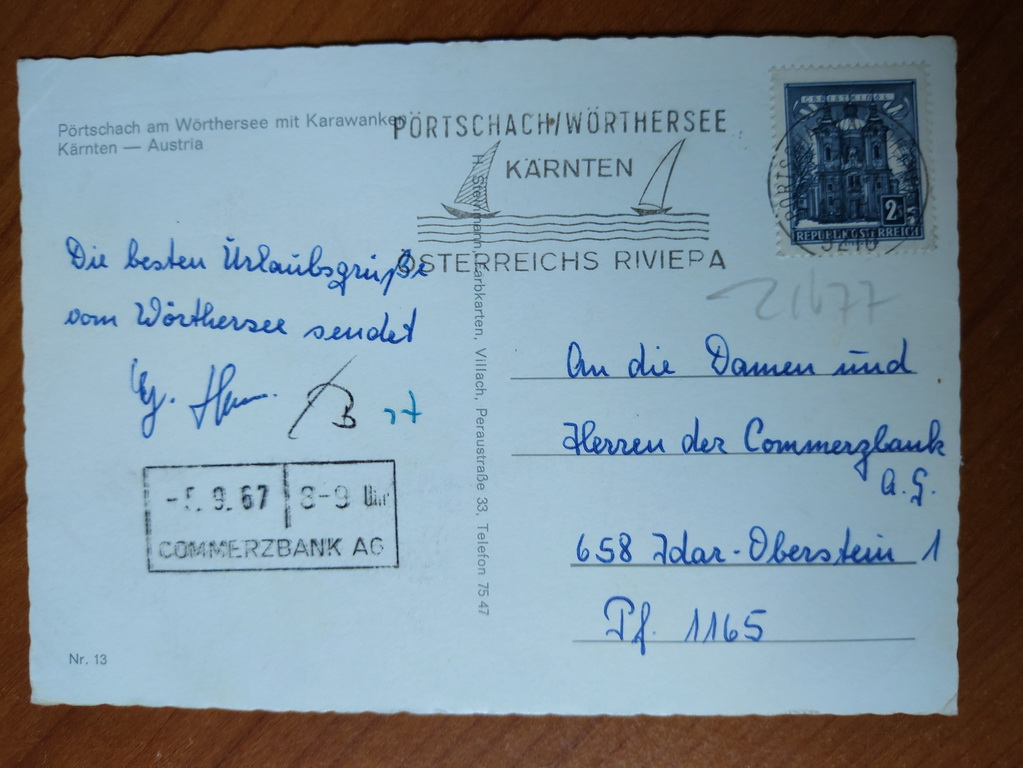 Pörtschach am Wörthersee mit Karawanken
Kärnten — Austria
PÖRTSCHACH/WÖRTHERSEE
KÄRNTEN
ÖSTERREICHS RIVIERA
CHRISTKINDL
2
REPUBLIK ÖSTERREICH
Die besten Urlaubsgrüße
vom Wörthersee sendet
B
-5.9.67 8-9 Uhr
COMMERZBANK AG
Nr. 13
Farbkarten, Villach, Peraustraße 33, Telefon 75 47
An die Damen und
Herren der Commerzbank
A.G.
658 Idar-Oberstein 1
Pf. 1165